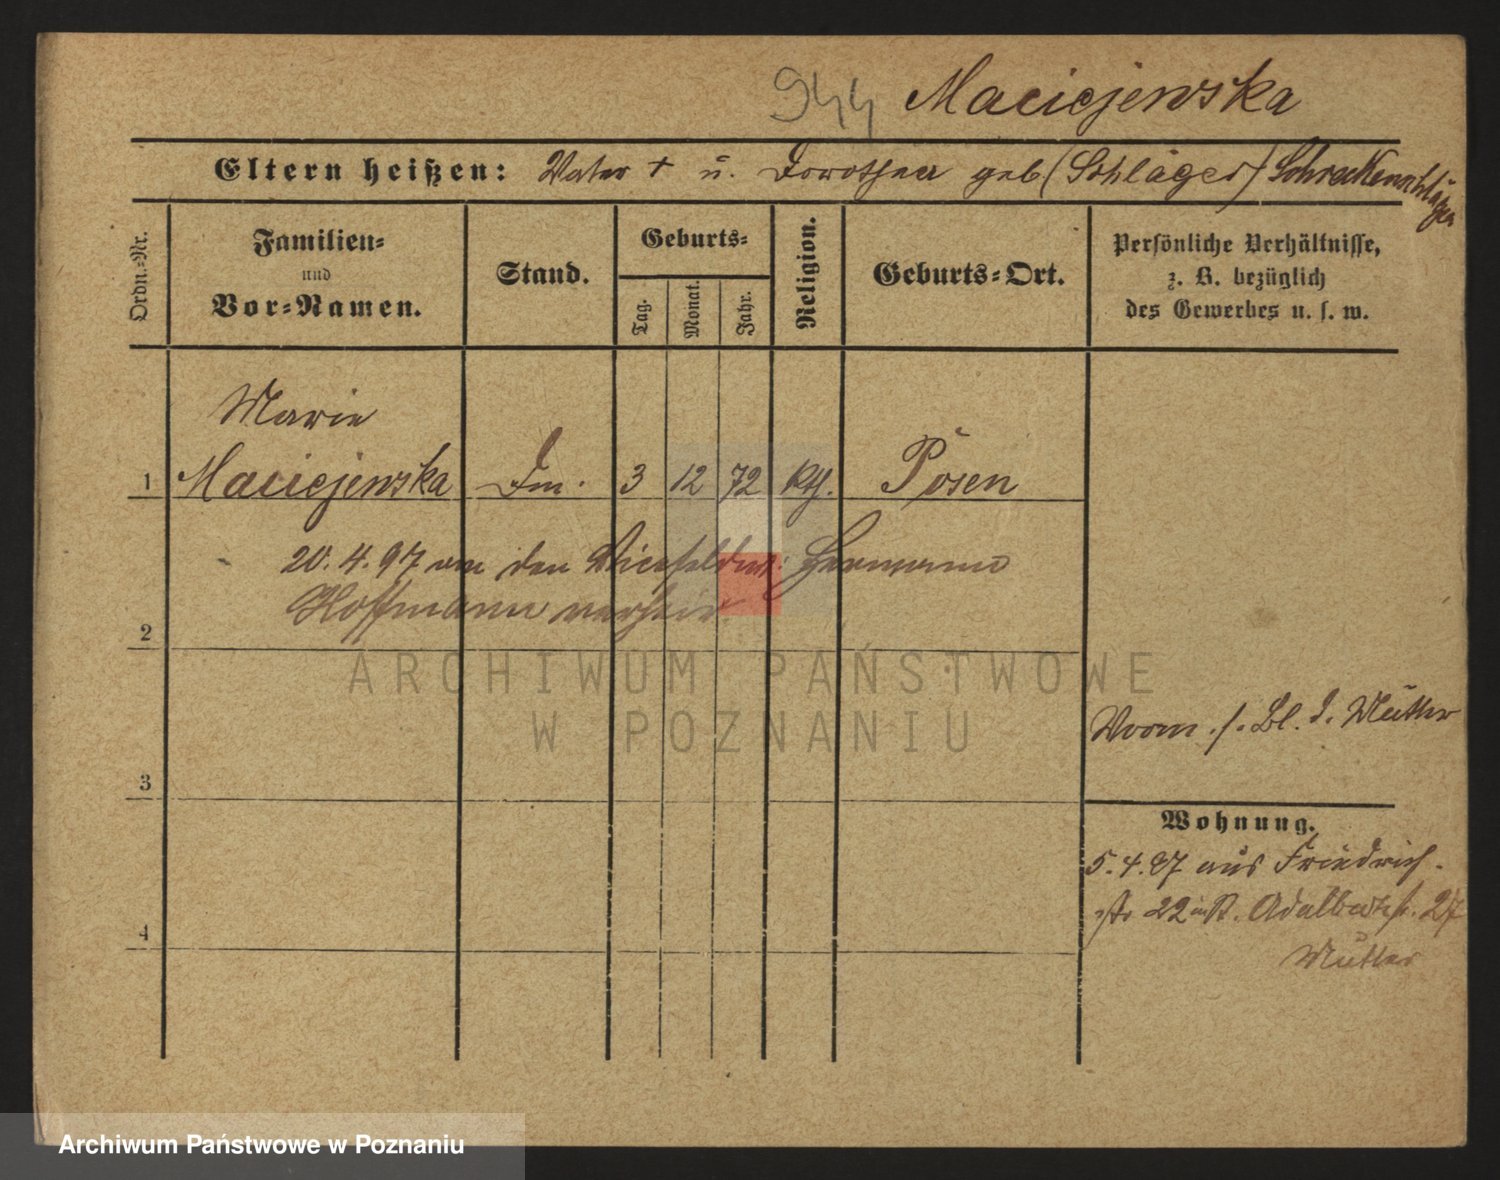 944 Maciejewska
Eltern heißen: Vater † u. Dorothea geb (Schläger) Schreckenschläger
Ordn.-Nr.
Familien-
und
Vor-Namen.
Stand.
Geburts-
Tag.
Monat.
Jahr.
Religion.
Geburts-Ort.
Persönliche Verhältnisse,
z. B. bezüglich
des Gewerbes u. s. w.
Marie
1 Maciejewska 3 12 72 kth. Posen
20. 4. 97 an den Hermann
Hoffmann verheir.
2
ARCHIWUM PAŃSTWOWE
W POZNANIU
s. Bl. d. Mutter
3
Wohnung.
5. 4. 97 aus Friedrich-
str 22 in St. Adalbertstr. 27
Mutter
4
Archiwum Państwowe w Poznaniu